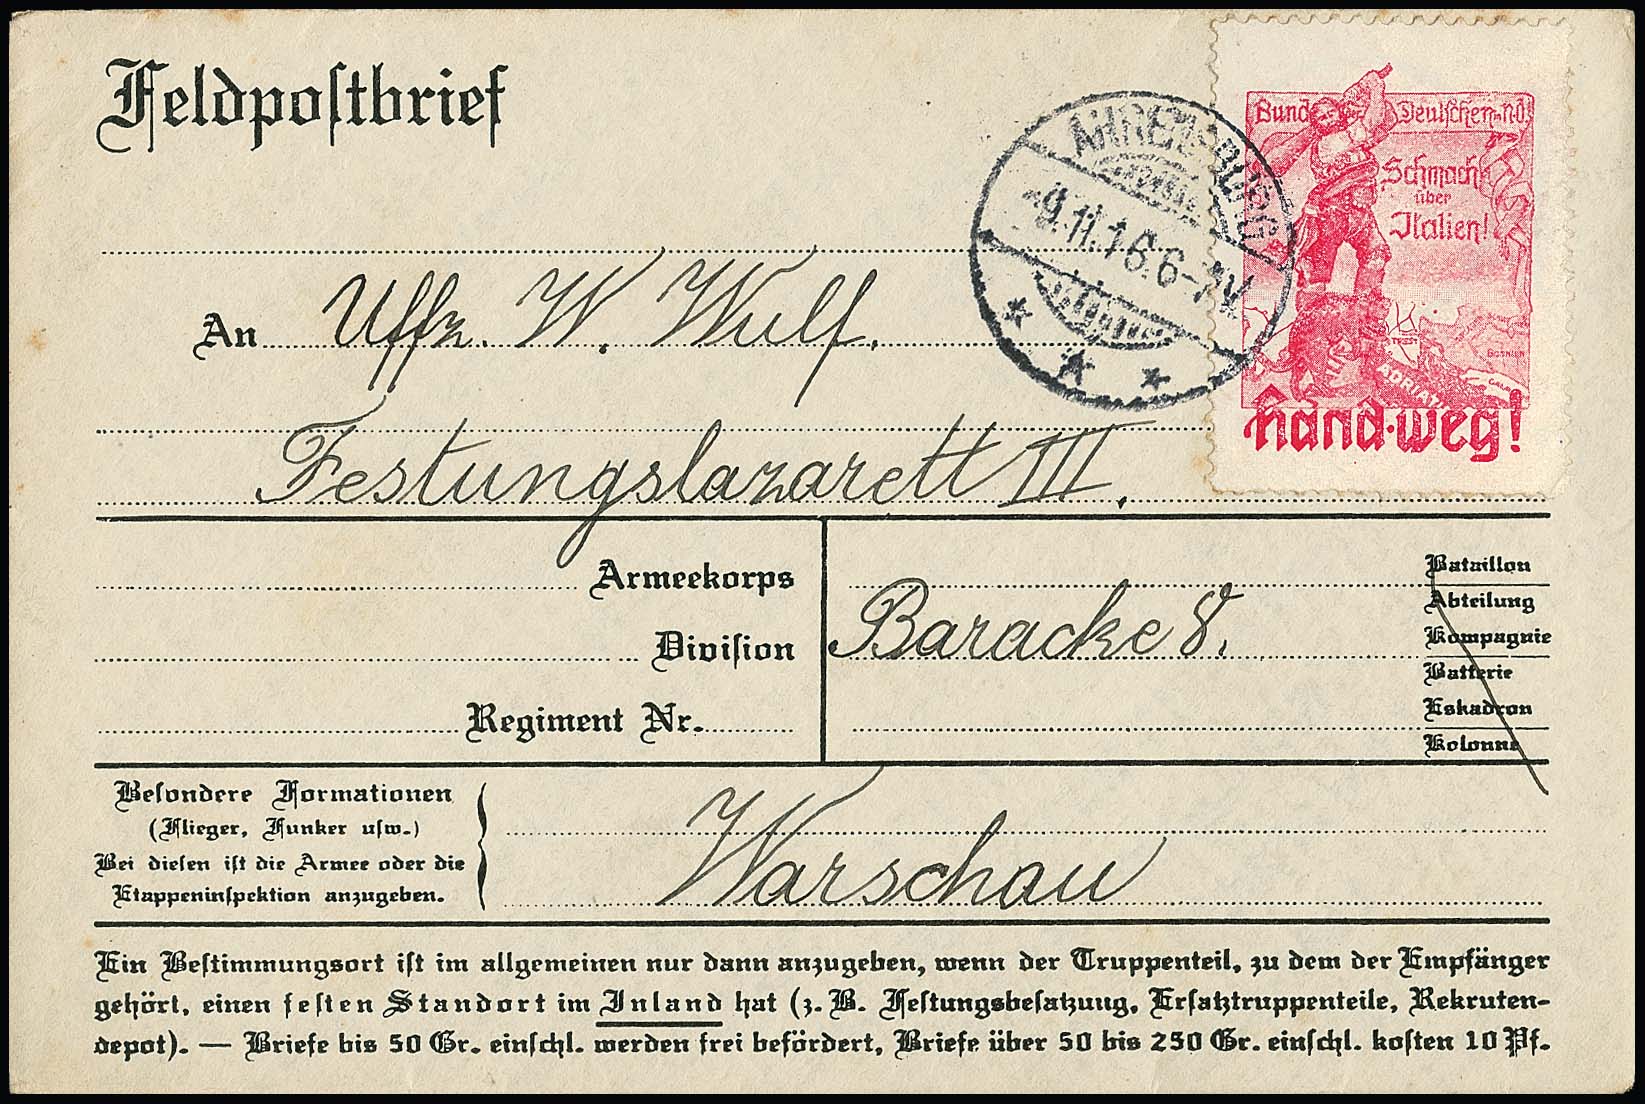 Feldpostbrief
AHRENSBURG
9.11.16.6-7N
Bund der Deutschen in N.Ö.
Schmach
über
Italien!
TRIEST
BOSNIEN
ADRIA
hand-weg!
An Uffz. W. Wulf.
Festungslazarett III.
Armeekorps
Division
Regiment Nr.
Baracke 8.
Bataillon
Abteilung
Kompagnie
Batterie
Eskadron
Kolonne
Besondere Formationen
(Flieger, Funker usw.)
Bei diesen ist die Armee oder die
Etappeninspektion anzugeben.
Warschau
Ein Bestimmungsort ist im allgemeinen nur dann anzugeben, wenn der Truppenteil, zu dem der Empfänger
gehört, einen festen Standort im Inland hat (z. B. Festungsbesatzung, Ersatztruppenteile, Rekruten-
depot). — Briefe bis 50 Gr. einschl. werden frei befördert, Briefe über 50 bis 250 Gr. einschl. kosten 10 Pf.